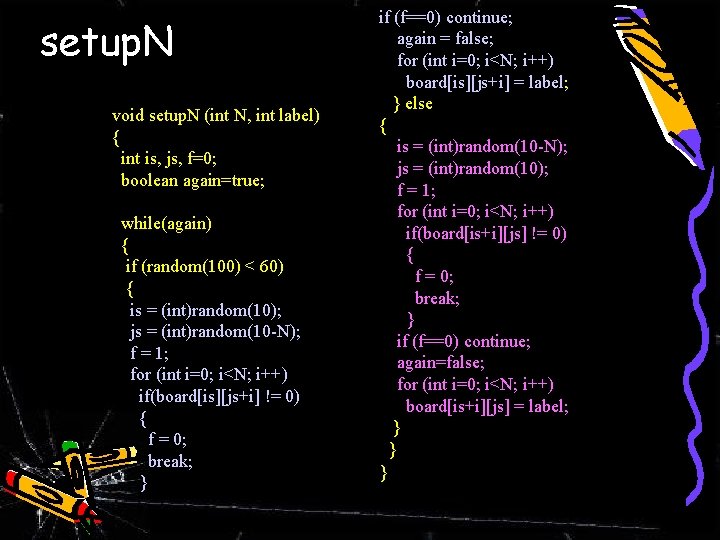 setup.N
void setup.N (int N, int label)
{
int is, js, f=0;
boolean again=true;
while(again)
{
if (random(100) < 60)
{
is = (int)random(10);
js = (int)random(10-N);
f = 1;
for (int i=0; i<N; i++)
if(board[is][js+i] != 0)
{
f = 0;
break;
}
if (f==0) continue;
again = false;
for (int i=0; i<N; i++)
board[is][js+i] = label;
} else
{
is = (int)random(10-N);
js = (int)random(10);
f = 1;
for (int i=0; i<N; i++)
if(board[is+i][js] != 0)
{
f = 0;
break;
}
if (f==0) continue;
again=false;
for (int i=0; i<N; i++)
board[is+i][js] = label;
}
}
}